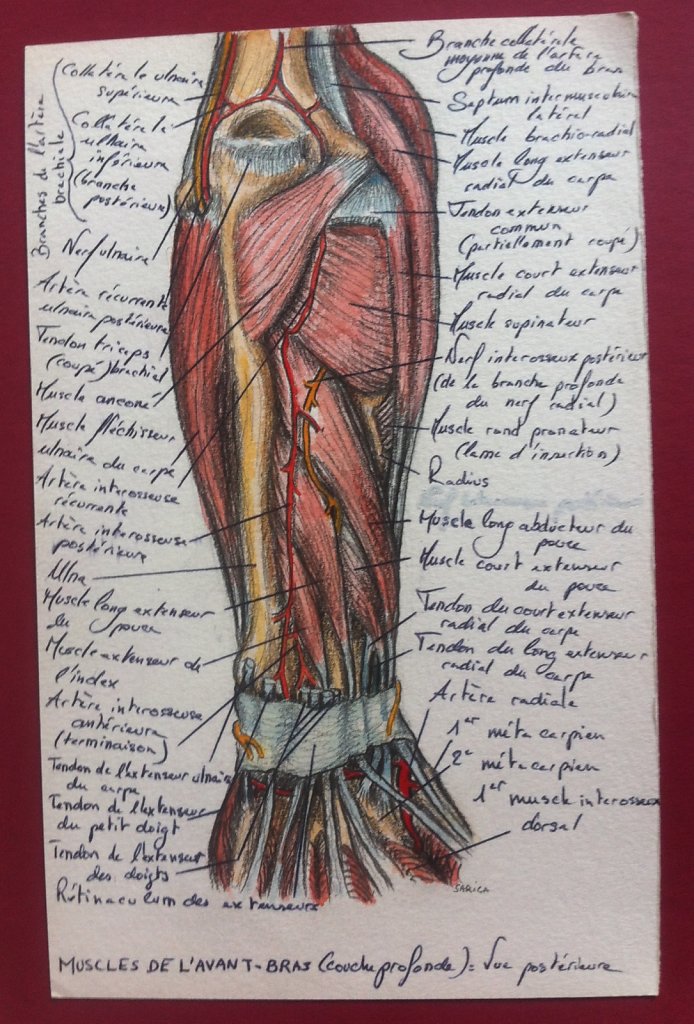 Branches de l'artère
brachiale
Collatérale ulnaire
supérieure
Collatérale
ulnaire
inférieure
(branche
postérieure)
Nerf ulnaire
Artère récurrente
ulnaire postérieure
Tendon triceps
(coupé) brachial
Muscle anconé
Muscle fléchisseur
ulnaire du carpe
Artère interosseuse
récurrente
Artère interosseuse
postérieure
Ulna
Muscle long extenseur
du pouce
Muscle extenseur de
l'index
Artère interosseuse
antérieure
(terminaison)
Tendon de l'extenseur ulnaire
du carpe
Tendon de l'extenseur
du petit doigt
Tendon de l'extenseur
des doigts
Rétinaculum des extenseurs
Branche collatérale
moyenne de l'artère
profonde du bras
Septum intermusculaire
latéral
Muscle brachio-radial
Muscle long extenseur
radial du carpe
Tendon extenseur
commun
(partiellement coupé)
Muscle court extenseur
radial du carpe
Muscle supinateur
Nerf interosseux postérieur
(de la branche profonde
du nerf radial)
Muscle rond pronateur
(lame d'insertion)
Radius
Muscle long abducteur du
pouce
Muscle court extenseur
du pouce
Tendon du court extenseur
radial du carpe
Tendon du long extenseur
radial du carpe
Artère radiale
1er métacarpien
2e métacarpien
1er muscle interosseux
dorsal
SARICA
MUSCLES DE L'AVANT-BRAS (couche profonde) = Vue postérieure